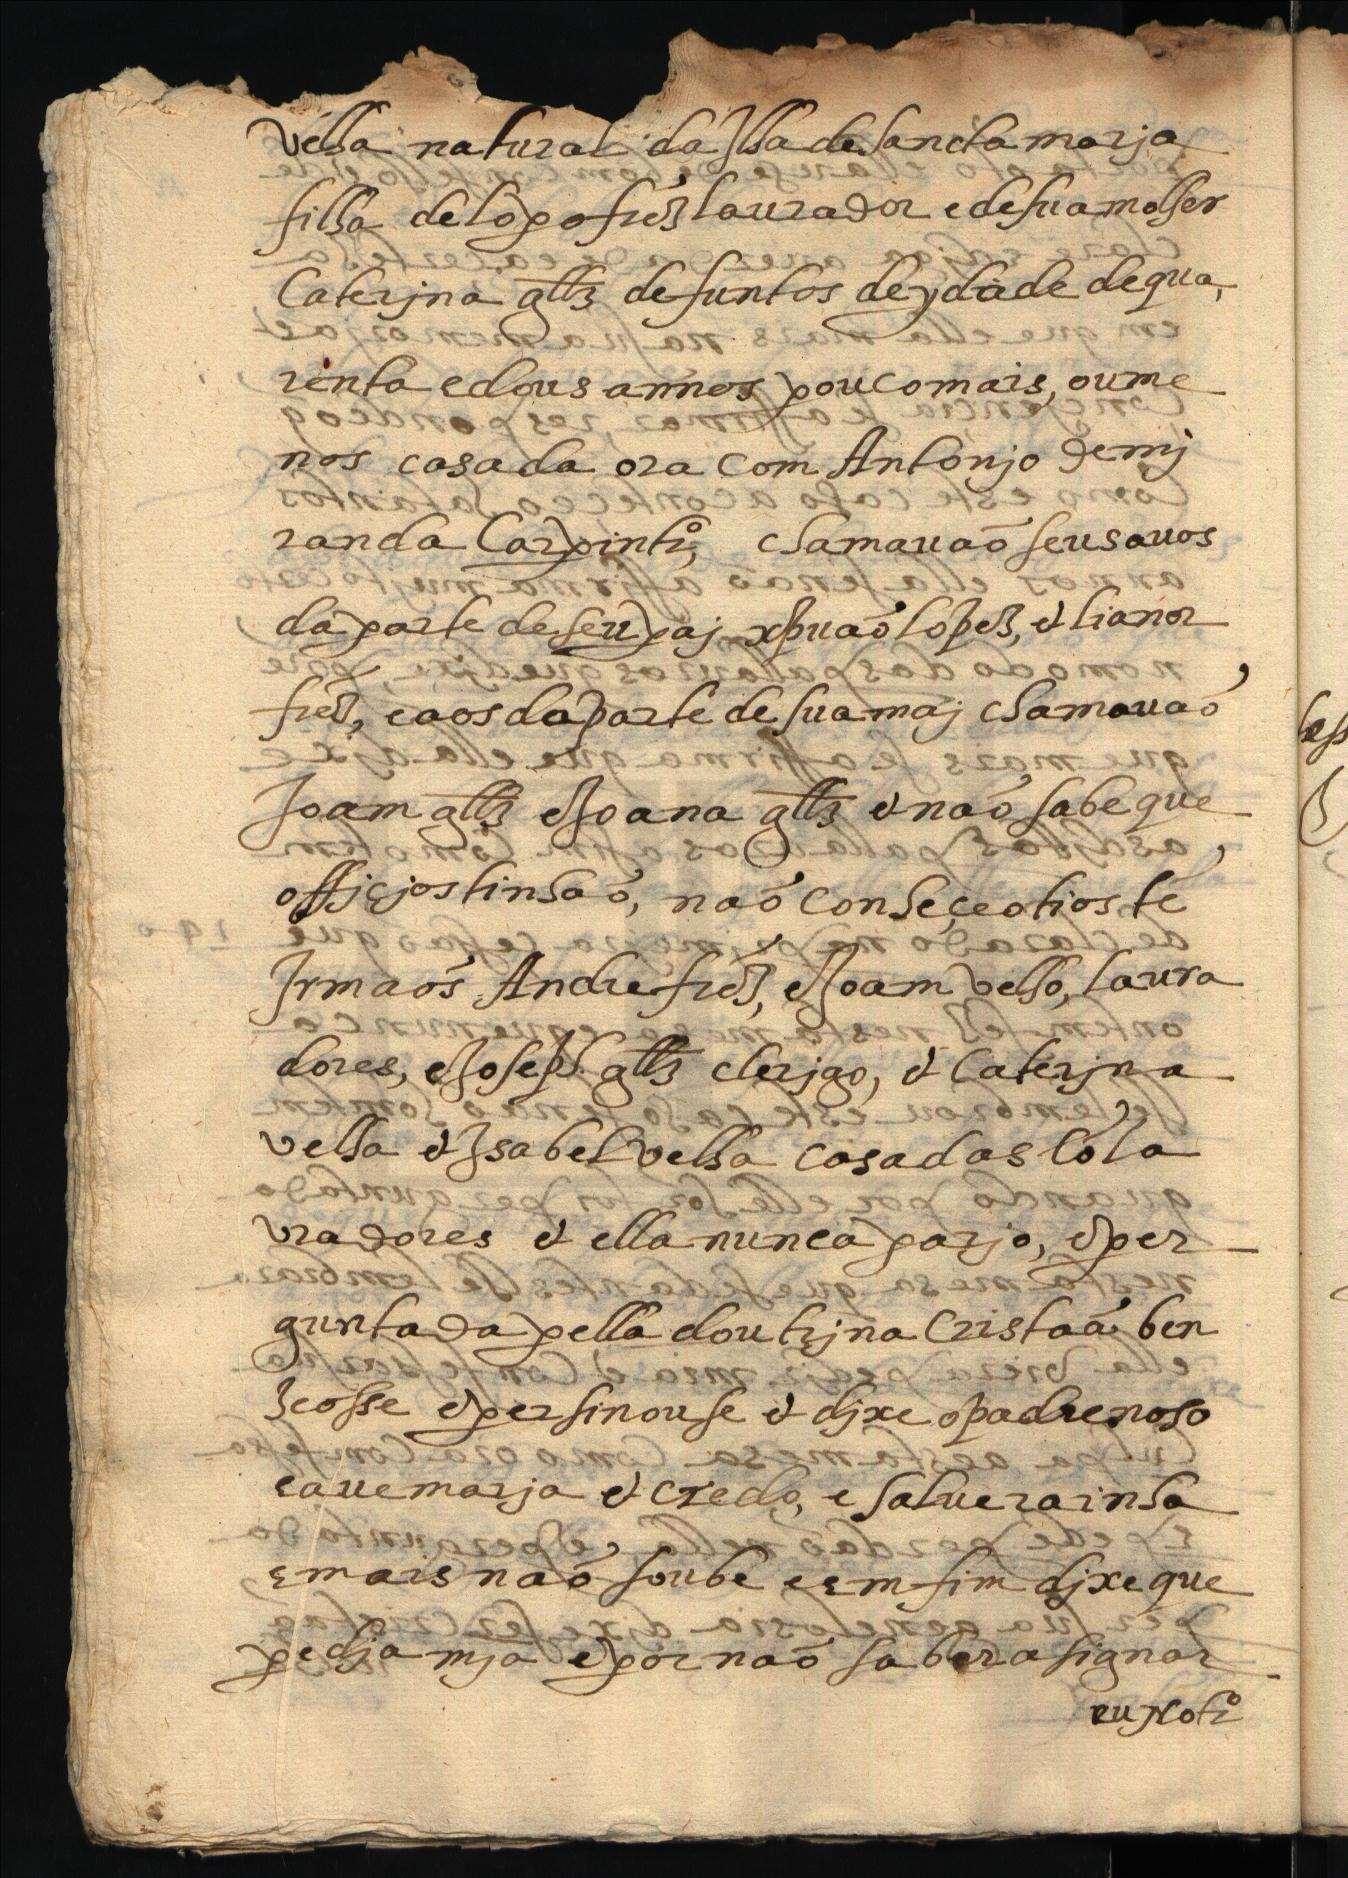 velha natural da Ilha de Sancta marja
filha de lopo frez laurador e de sua molher
Caterjna glz defuntos de ydade de qua,
renta e dous annos pouco mais, ou me
nos casada ora com Antonjo de mj
randa Carpintro, chamauaõ seus auos
da parte de seu paj xpuaõ lopez, e lianor
frez, e aos da parte de sua maj chamauaõ
Joam glz e Joana glz e naõ sabe que
offiçjos tinhaõ, naõ conheçeo tios te
Irmaõs Andre frez, e Joam velho, laura
dores, e Joseph glz clerjgo, e Caterjna
velha e Isabel velha casadas cõ la
vradores e ella nunca parjo, e per
guntada pella doutrjna Cristaã ben
zeosse e persinouse e djxe o padre noso
e aue marja e credo, e salue rainha
e mais naõ soube e em fim djxe que
pedja mja e por naõ saber asignar
eu Notro